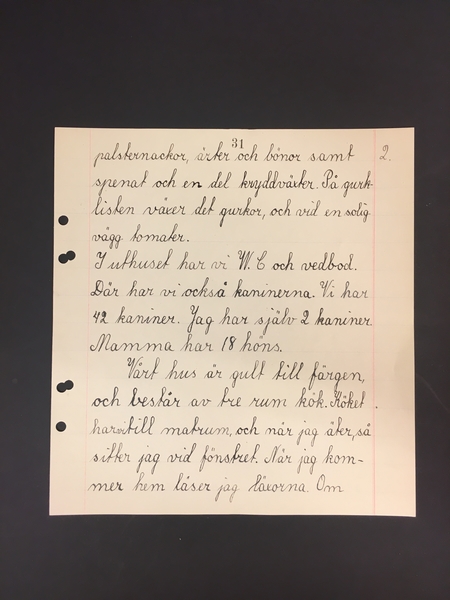 31
palsternackor, ärter och bönor samt 2.
spenat och en del kryddväxter. På gurk-
listen växer det gurkor, och vid en solig
vägg tomater.
I uthuset har vi W.C och vedbod.
Där har vi också kaninerna. Vi har
42 kaniner. Jag har själv 2 kaniner.
Mamma har 18 höns.
Vårt hus är gult till färgen,
och består av tre rum kök. Köket
har vi till matrum, och när jag äter, så
sitter jag vid fönstret. När jag kom-
mer hem läser jag läxorna. Om